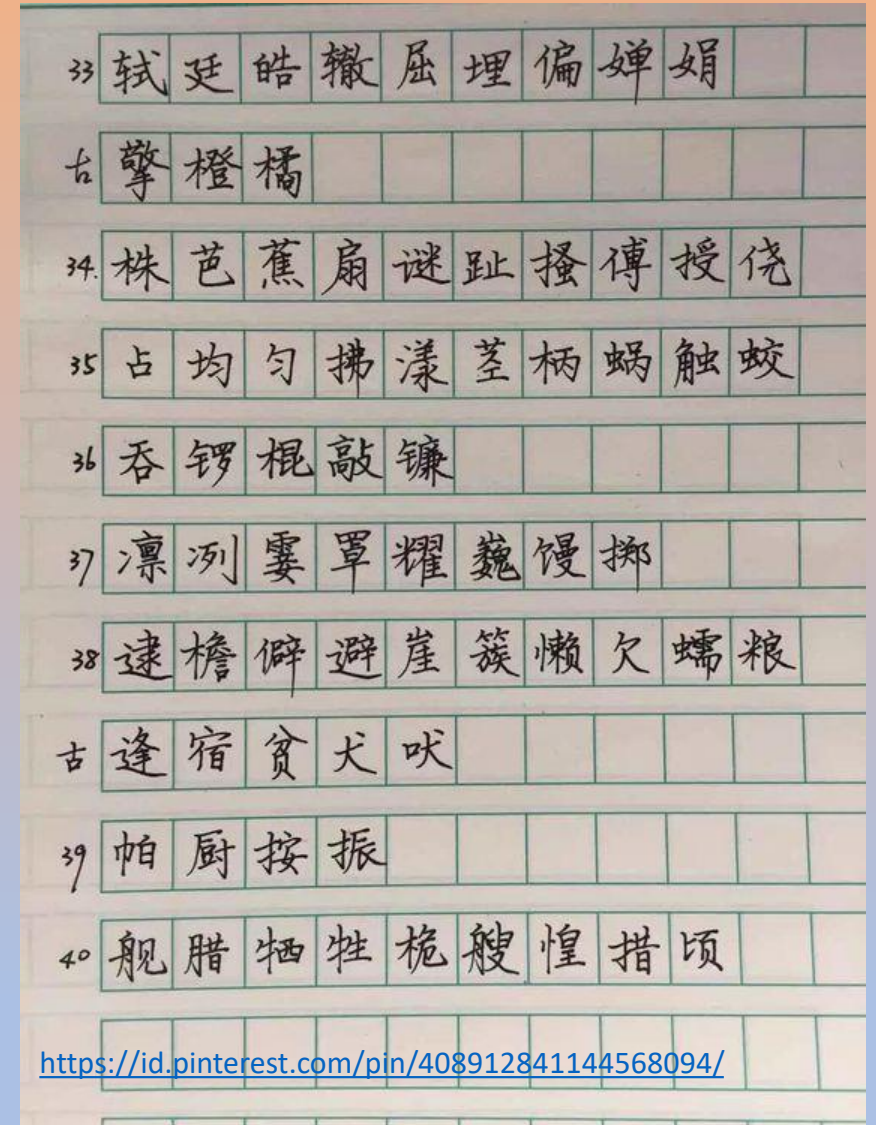 33 轼廷皓辙屈埋偏婵娟
古 擎橙橘
34. 株芭蕉扇谜趾搔傅授侥
35 占均匀拂漾茎柄蜗触蛟
36 吞锣棍敲镰
37 凛冽霎罩耀巍馒掷
38 逮檐僻避崖簇懒欠蠕粮
古 逢宿贫犬吠
39 帕厨按振
40 舰腊牺牲桅艘惶措顷
https://id.pinterest.com/pin/408912841144568094/